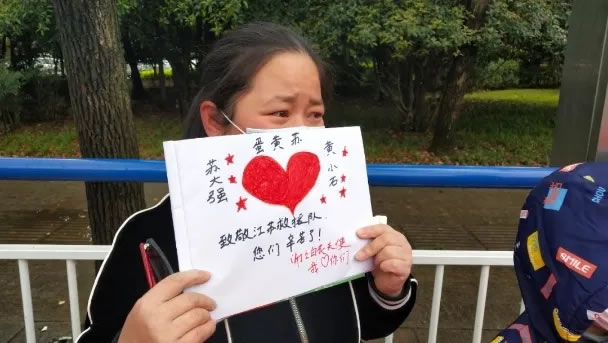 蛋黄苏
苏大强
黄小石
致敬江苏救援队
您们辛苦了!
谢谢白衣天使
我♡你们
SMILE